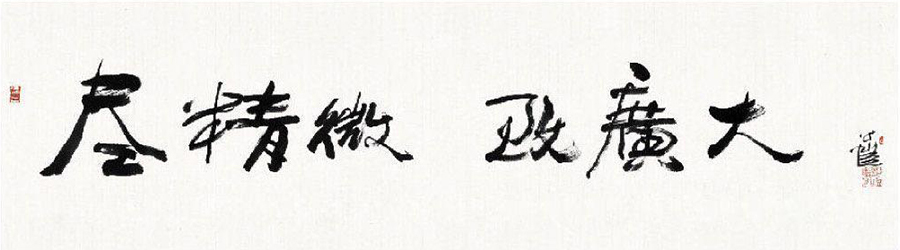 尽精微 致廣大